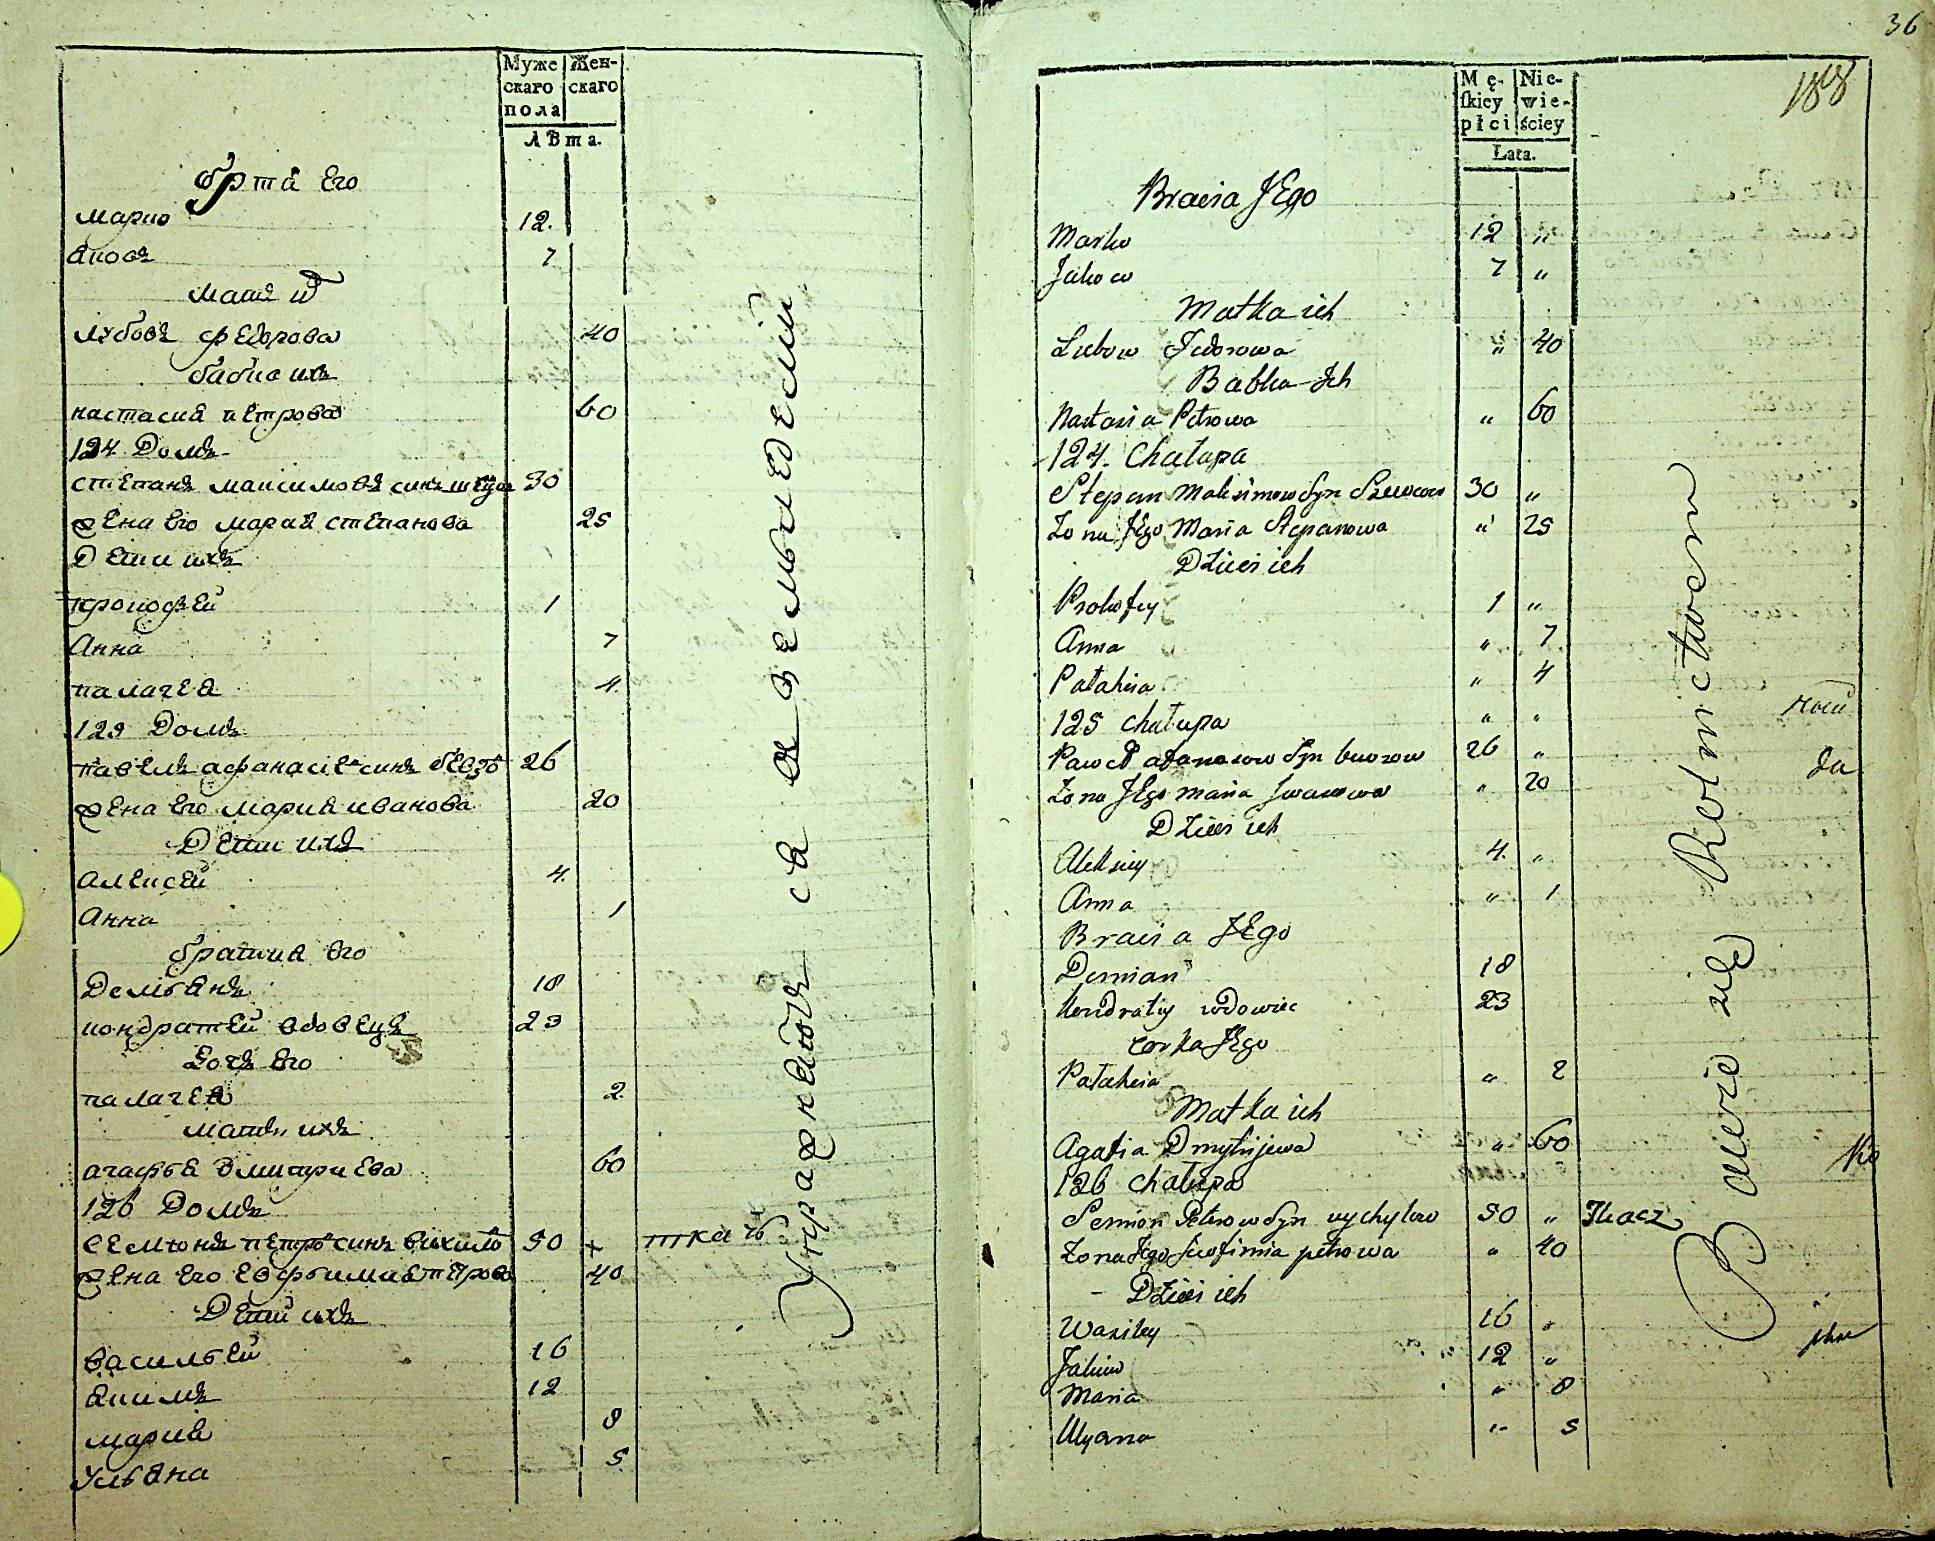 Муже
скаго
пола
Жен-
скаго
Лѣта.
братя его
марко 12.
яковъ 7
мати их
любовъ федорова 40
бабка ихъ
настасия петрова 60
124 Домъ
степанъ максимовъ синъ 30
жена его мария степанова 25
Дети ихъ
прокофей 1
Анна 7
палагея 4.
125 Домъ
павелъ афанасіевъ синъ 26
жена его мария иванова 20
Дети ихъ
алексей 4.
анна 1
братия его
Демьянъ 18
кондратей вдовецъ 23
Дочъ его
палагея 2
мать ихъ
агафья дмитриева 60
126 Домъ
семионъ петровъ синъ 50 + ткачъ
жена его евфьимия петрова 40
Дети ихъ
василей 16
якимъ 12
мария 8
ульяна 5
Упражняютъ ся земледелїи
36
188
Mę-
skiey
płci
Nie-
wie-
ściey
Łata.
Bracia JEgo
Marko 12 „
Jakow 7 „
Matka ich
Lubow Fedorowa „ 40
Babka Ich
Nastasia Petrowa „ 60
124. Chałupa
Stepan Maksimow Syn 30 „
Zona JEgo Maria Stepanowa „ 25
Dzieci ich
Prokofey 1 „
Anna „ 7
Pałahia „ 4
125 chałupa „ „
Paweł afanasow Syn 26 „
Zona JEgo maria Iwanowa „ 20
Dzieci ich
Aleksiey 4. „
Anna „ 1
Bracia JEgo
Demian 18
Kondratiy wdowiec 23
corka JEgo
Pałahia „ 2
Matka ich
Agafia Dmytrijewa „ 60
126 chałupa
Semion Petrow Syn 50 „ Tkacz
Zona Jego Jewfimia petrowa „ 40
- Dzieci ich
Wasiley 16 „
Jakim 12 „
Maria „ 8
Ulyana „ 5
Bawie się Rolnictwem